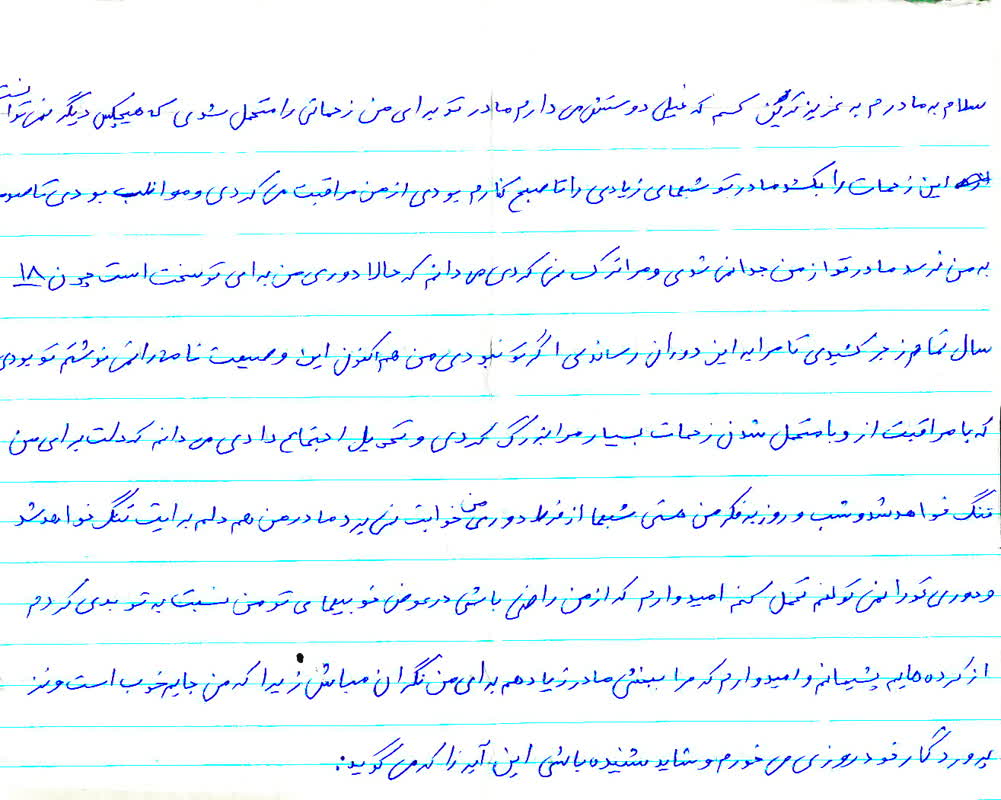 سلام به مادرم به عزیزترین کسم که خیلی دوستش می دارم مادر تو برای من زحماتی را متحمل شدی که هیچکس دیگر نمی توانست
این زحمات را بکشد مادر تو شبهای زیادی را تا صبح کنارم بودی از من مراقبت می کردی و مواظب بودی تا صدمه
به من نرسد مادر تو از من جدا نمی شوی و مرا ترک نمی کردی می دانم که حالا دوری من برای تو سخت است چون ۱۸
سال تمام زجر کشیدی تا مرا به این دوران رساندی اگر تو نبودی من هم اکنون این وصیعت نامه را نمی نوشتم تو بودی
که با مراقبت از و با متحمل شدن زحمات بسیار مرا بزرگ کردی و تحویل اجتماع دادی می دانم که دلت برای من
تنگ خواهد شد و شب و روز به فکر من هستی شبها از فرط دوری من خوابت نمی برد مادر من هم دلم برایت تنگ خواهد شد
و دوری تو را نمی توانم تحمل کنم امیدوارم که از من راضی باشی در عوض خوبیهای تو من نسبت به تو بدی کردم
از کرده هایم پشیمانم و امیدوارم که مرا ببخشی مادر زیاد هم برای من نگران مباش زیرا که من جایم خوب است و نزد
پروردگار خود روزی می خورم و شاید شنیده باشی این آیه را که می گوید: